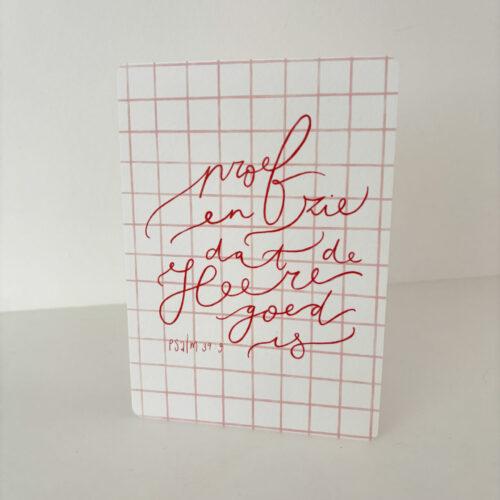 proef
en zie
dat de
Heere
goed
is
psalm 34 9